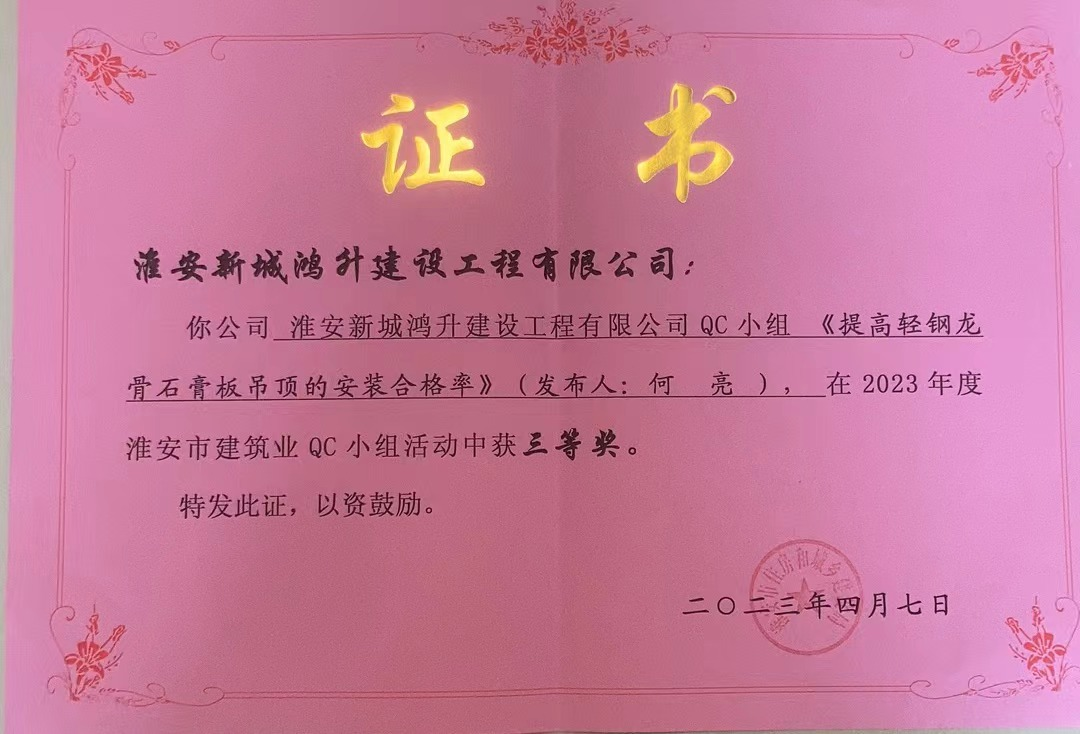 证书
淮安新城鸿升建设工程有限公司：
你公司 淮安新城鸿升建设工程有限公司 QC 小组 《提高轻钢龙
骨石膏板吊顶的安装合格率》（发布人：何 亮 ）， 在 2023 年度
淮安市建筑业 QC 小组活动中获三等奖。
特发此证，以资鼓励。
二〇二三年四月七日